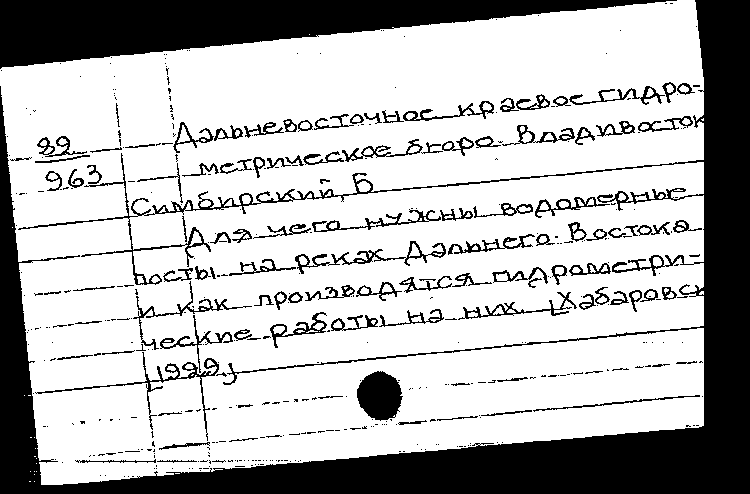 Дальневосточное краевое гидро-
89
метрическое бюро. Владивосток
963
Симбирский, Б
Для чего нужны водомерные
посты на реках Дальнего Востока
и как производятся гидрометри-
ческие работы на них. [Хабаровск
[1929]